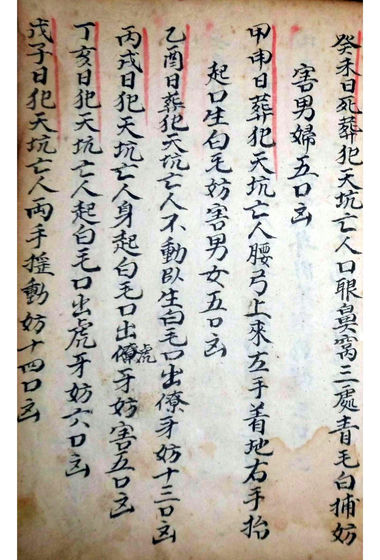 癸未日死葬犯天坑亡人口眼鼻窩三處青毛白捕妨
害男婦五口凶
甲申日葬犯天坑亡人腰弓上來左手着地右手抬
起口生白毛妨害男女五口凶
乙酉日葬犯天坑亡人不動臥生白毛口出獠牙妨十三口凶
丙戌日犯天坑亡人身起白毛口出獠虎牙妨害五口凶
丁亥日犯天坑亡人起白毛口出虎牙妨六口凶
戊子日犯天坑亡人両手搖動妨十四口凶